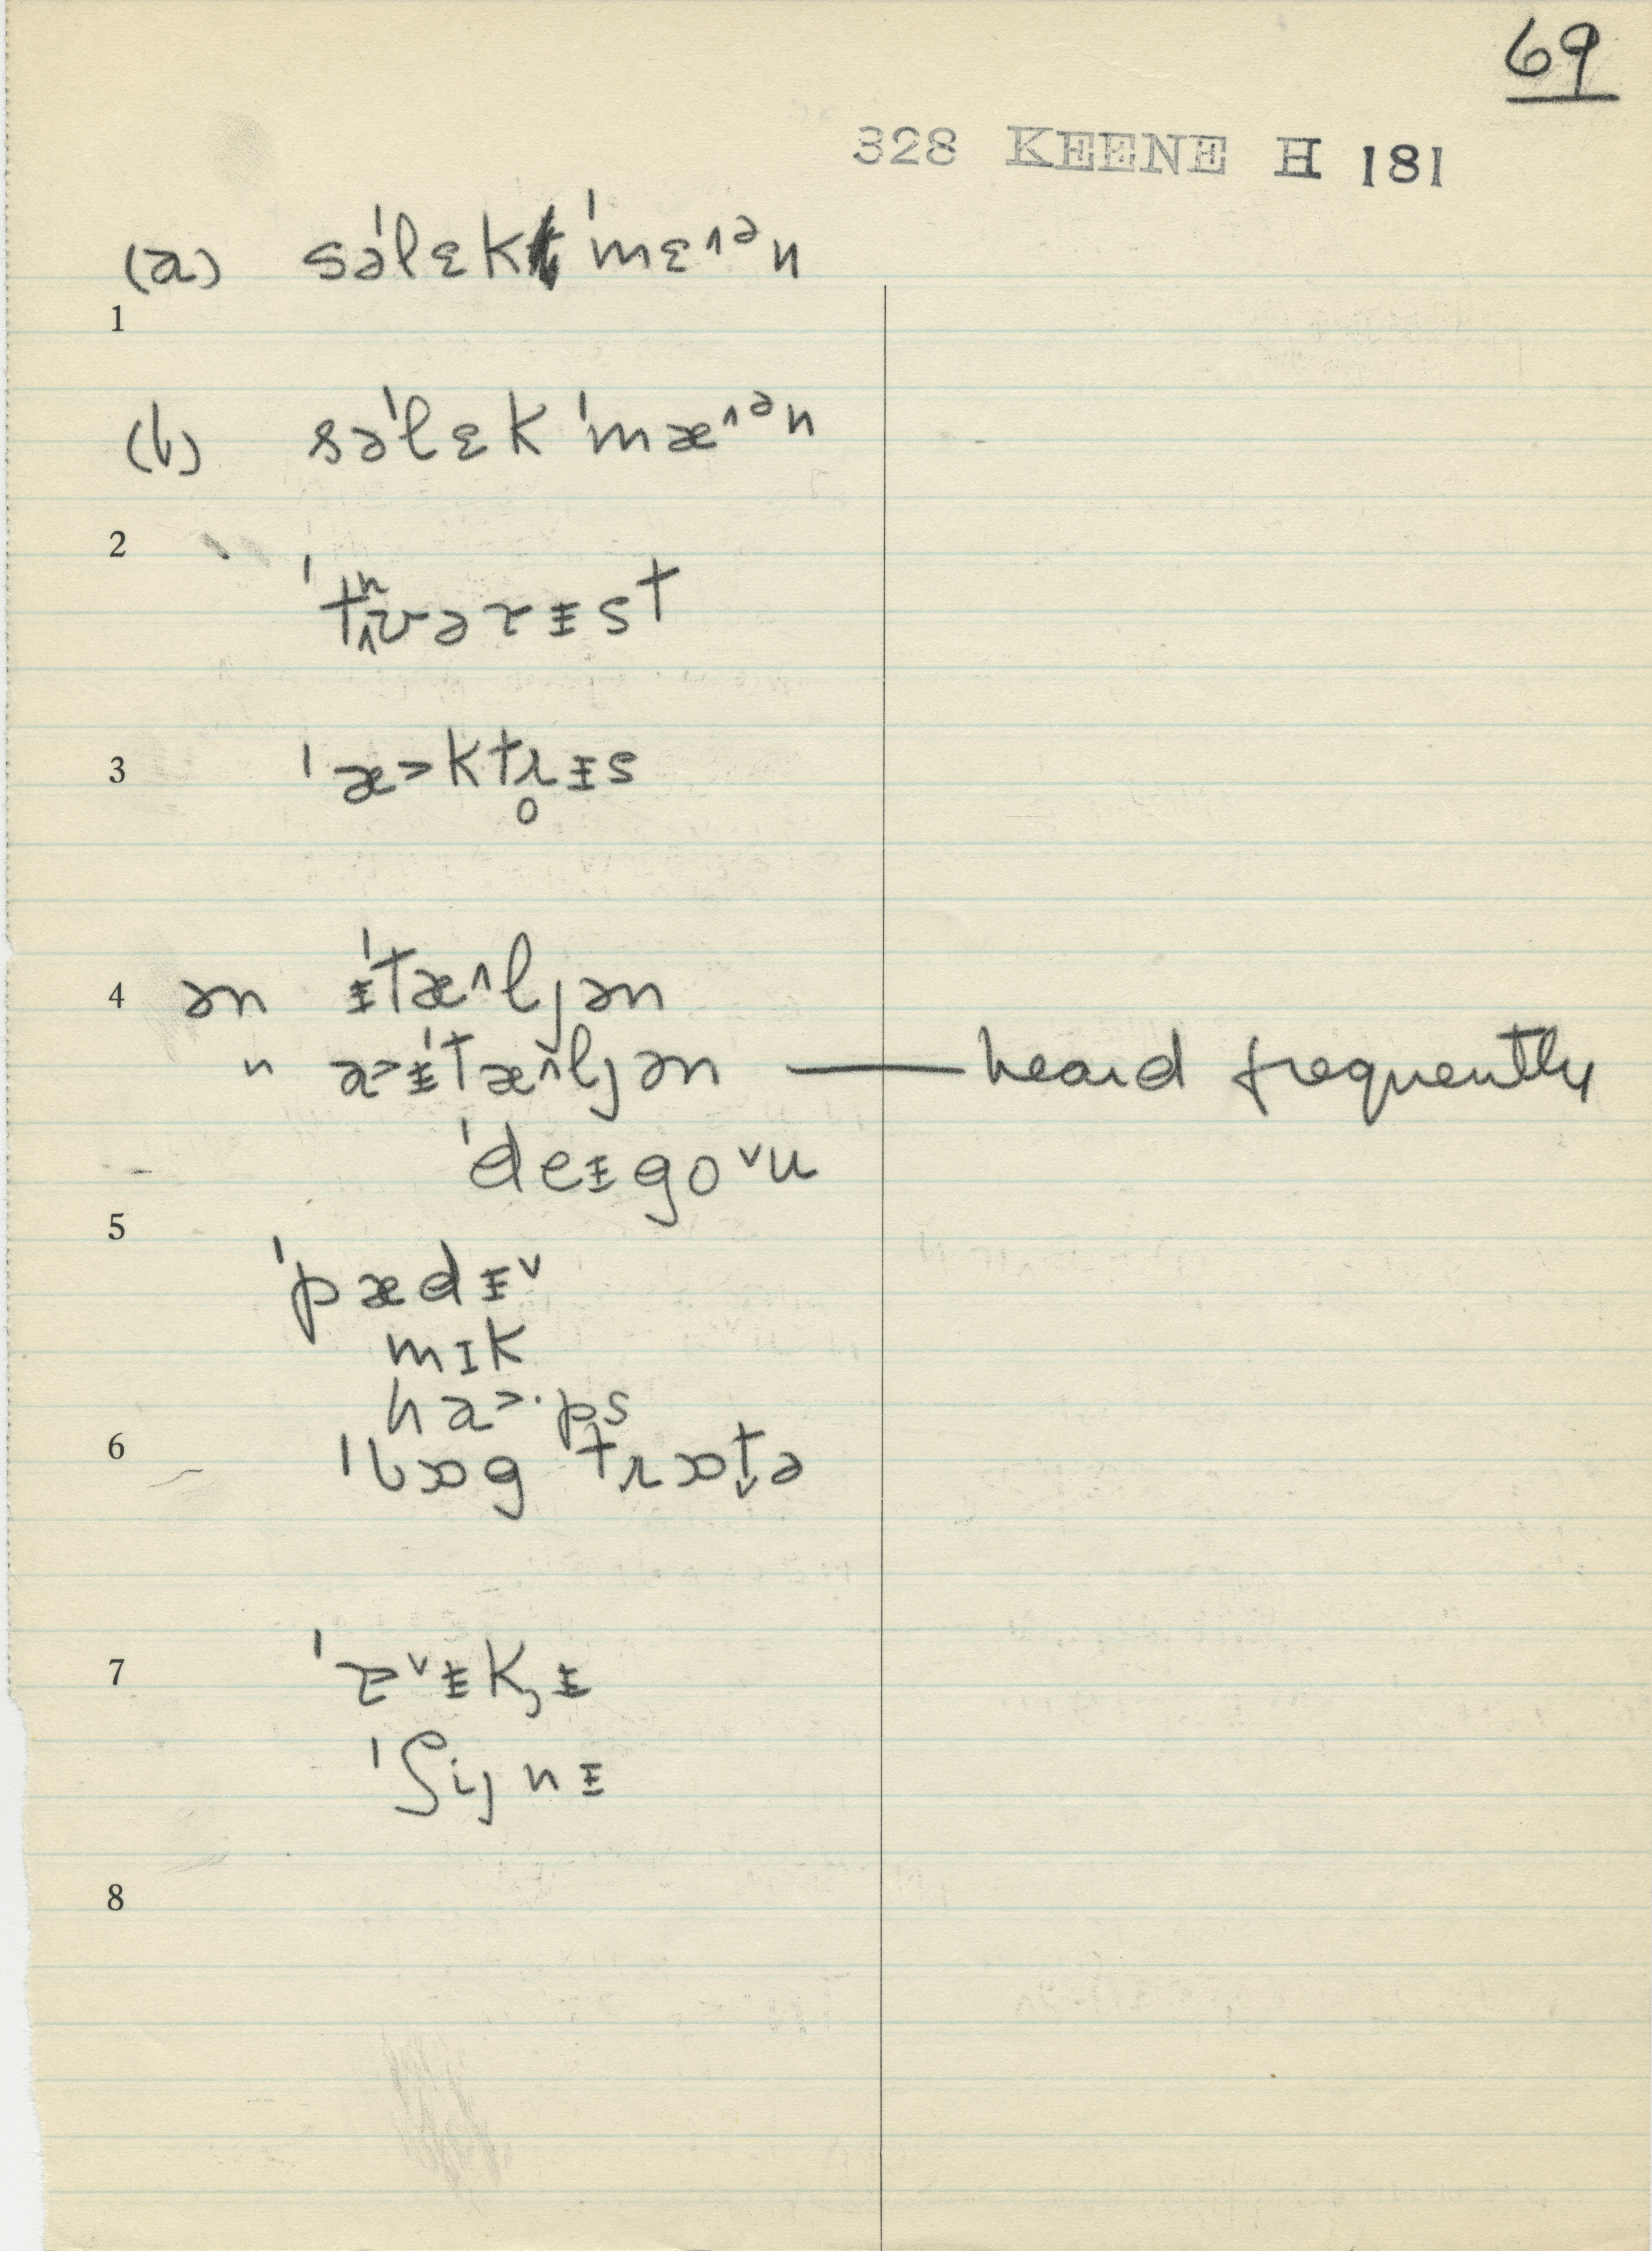 69
328 KEENE H 181
(a) səˈlɛk ˈmɛ˄ᵊn
1
(b) səˈlɛk ˈmæ˄ᵊn
2
ˈtʰʊərᵻst
3 ˈæ˃ktr̥ᵻs
4 ən ᵻˈtæ˄ljən
" a˃ᵻˈtæ˄ljən — heard frequently
ˈdeᵻgo˅u
5
ˈpædᵻ˅
mɪk
ha˃·ps
6 ˈbɒg trɒt̬ə
7
ˈʃijnᵻ
8